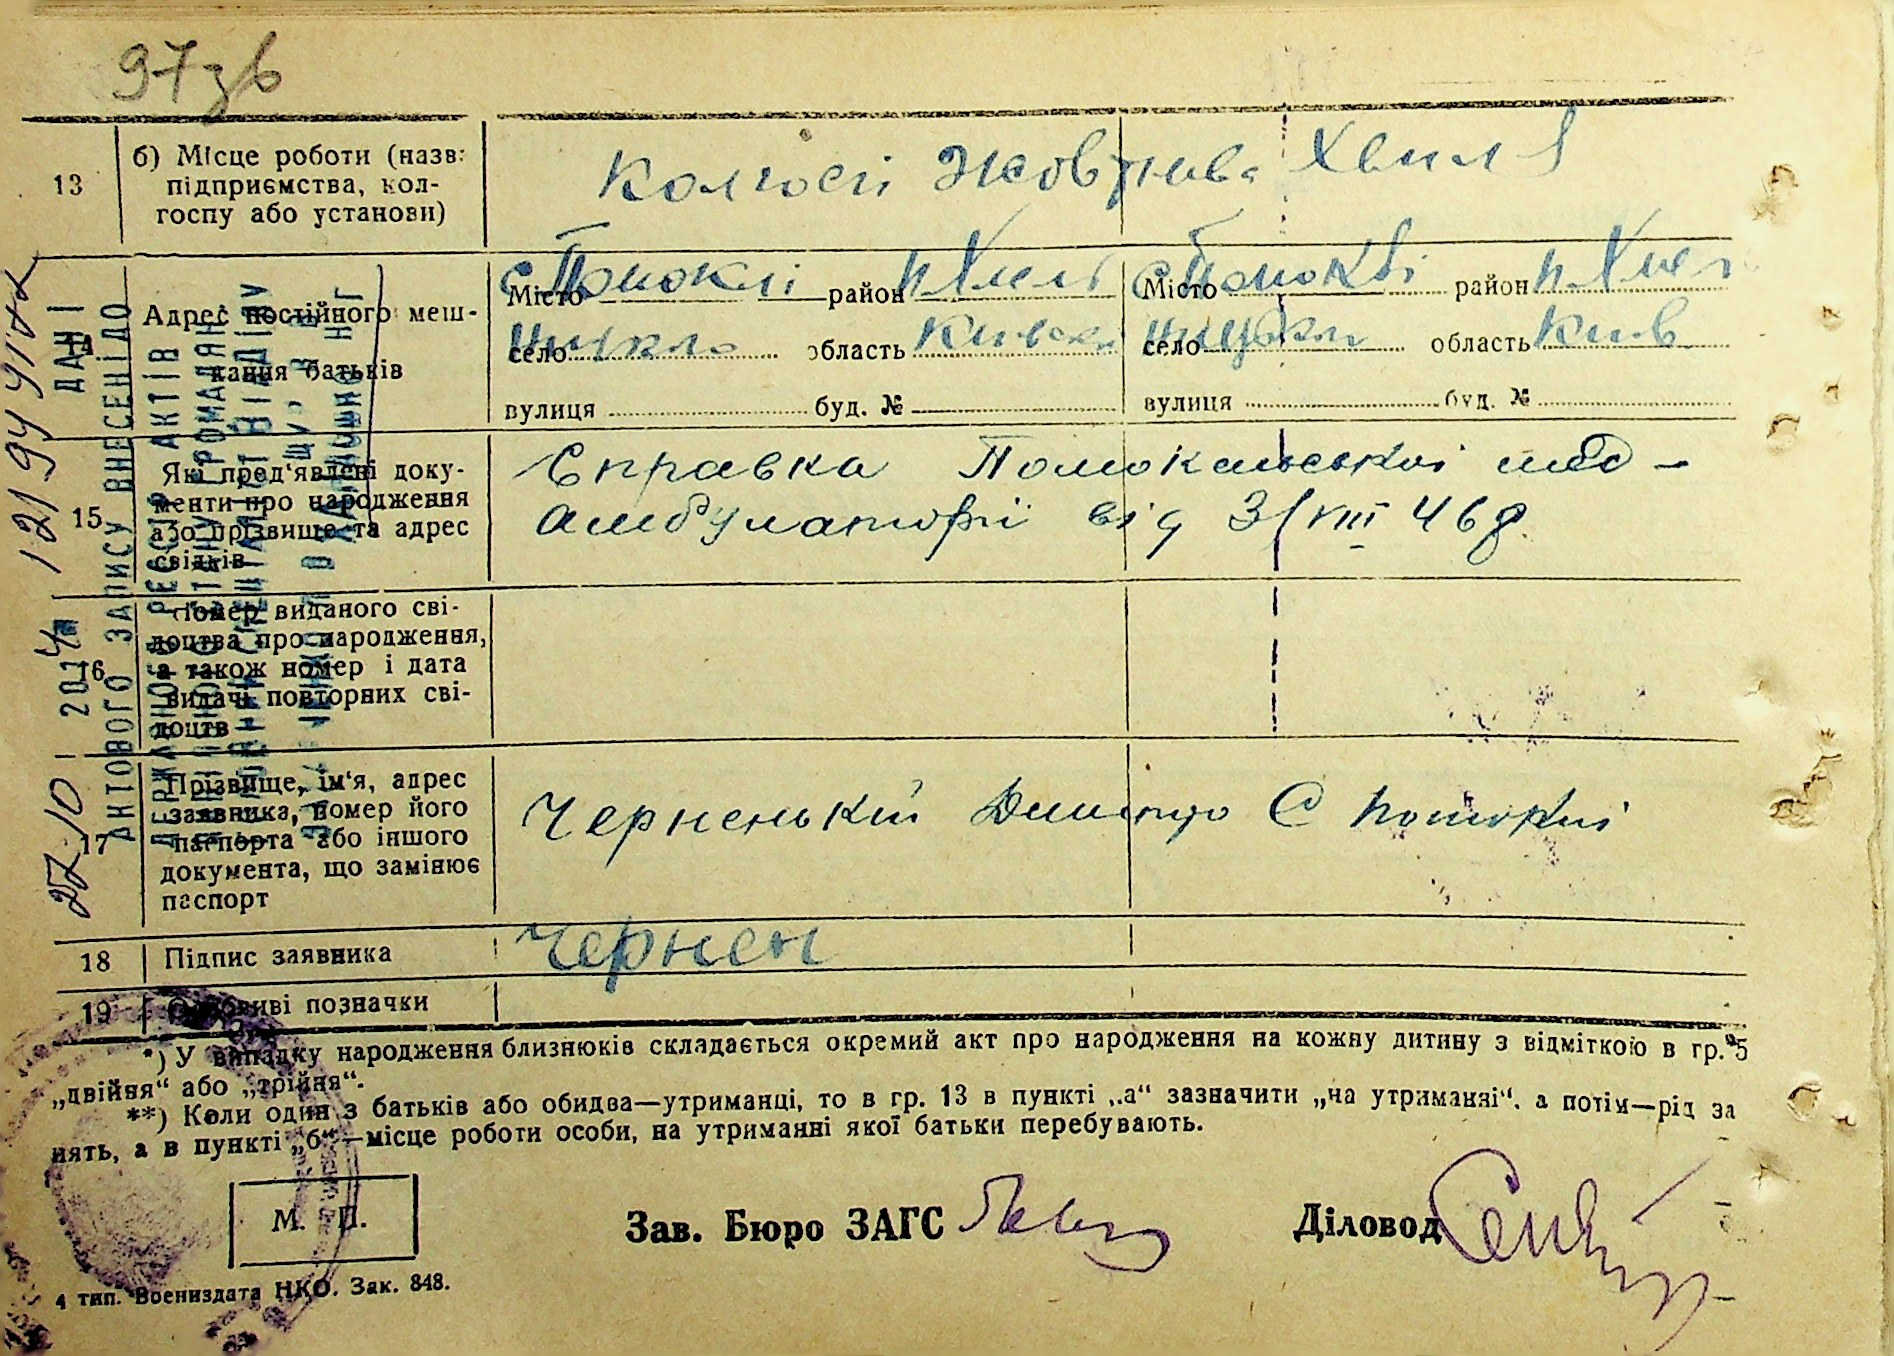 97зв
13
б) Місце роботи (назв:
підприємства, кол-
госпу або установи)
колгосп Жовтнева Хвиля
14
Адрес постійного меш-
кання батьків
Місто с Помоклі район П Хмель
село ницкого область Київськ
вулиця буд. №
Місто с район П Хмел
село область Київ
вулиця буд. №
15
Які пред'явлені доку-
менти про народження
або прізвище та адрес
свідків
Справка Помокельської мед-
амбулаторії від 3/VIII 46р.
16
Номер виданого сві-
доцтва про народження,
а також номер і дата
видачі повторних сві-
доцтв
17
Прізвище, ім'я, адрес
заявника, номер його
паспорта або іншого
документа, що замінює
паспорт
Черненький Дмитро С Помоклі
18
Підпис заявника
Чернен
19
Особливі позначки
*) У випадку народження близнюків складається окремий акт про народження на кожну дитину з відміткою в гр. 5
„двійня“ або „трійня“.
**) Коли один з батьків або обидва—утриманці, то в гр. 13 в пункті „а“ зазначити „на утриманні“, а потім—рід за
нять, а в пункті „б“—місце роботи особи, на утриманні якої батьки перебувають.
М. П.
Зав. Бюро ЗАГС
Діловод
4 тип. Воениздата НКО. Зак. 848.
ДАНІ
АКТОВОГО ЗАПИСУ ВНЕСЕНІ ДО
ДЕРЖАВНОГО РЕЄСТРУ АКТІВ
ЦИВІЛЬНОГО СТАНУ ГРОМАДЯН
22 10 2014